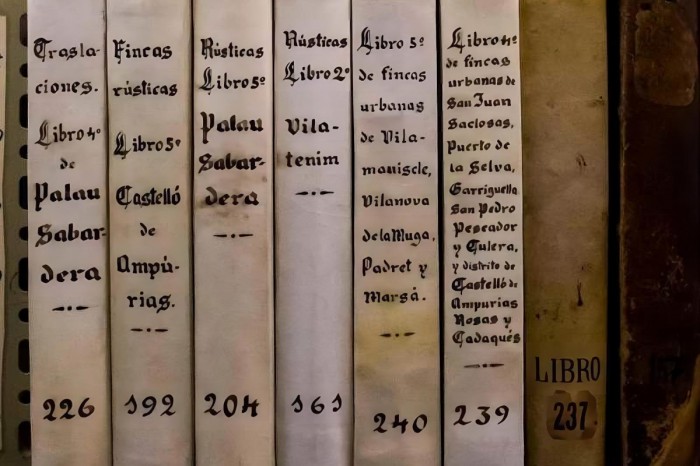 Trasla-
ciones.
Libro 4º
de
Palau
Sabar-
dera
226
Fincas
rústicas
Libro 5º
Castelló
de
Ampú-
rias.
192
Rústicas
Libro 5º
Palau
Sabar-
dera
204
Rústicas
Libro 2º
Vila-
tenim
161
Libro 5º
de fincas
urbanas
de Vila-
maniscle,
Vilanova
de la Muga,
Padret y
Marsá.
240
Libro 4º
de fincas
urbanas de
San Juan
Saclosas,
Puerto de
la Selva,
Garriguella
San Pedro
Pescador
y Culera,
y distrito de
Castelló de
Ampurias
Rosas y
Cadaqués
239
LIBRO
237